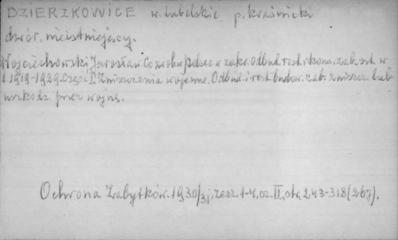 DZIERZKOWICE w. lubelskie p. kraśnicki
dwór. nieistniejący.
Wojciechowski Jarosław Co zrobił
w zakr. odbud. i rest. zab. szt. w
l. 1919-1929. Część I. Zniszczenia wojenne. Odbud. i rest. budow. zab. zniszcz. lub
uszkodz. przez wojnę.
Ochrona Zabytków. 1930/31, zesz. 1-4, cz. II, str. 243-318 (267).